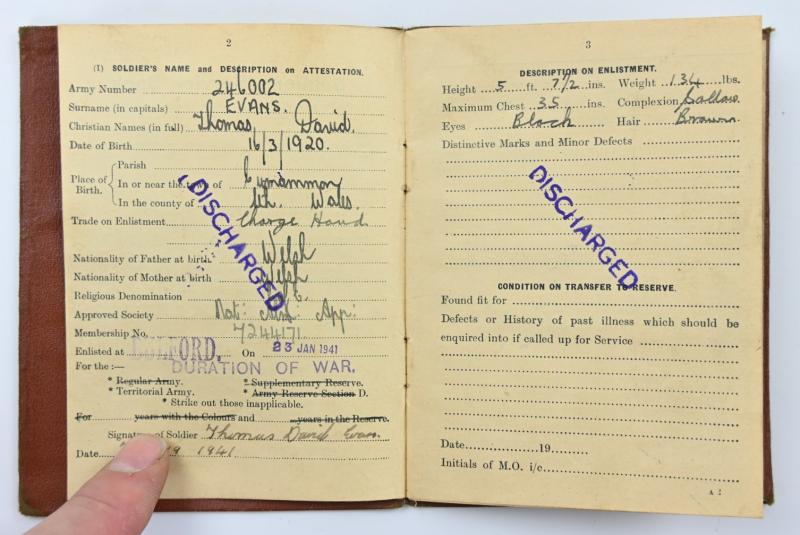 2
(I) SOLDIER'S NAME and DESCRIPTION on ATTESTATION.
Army Number 246002
Surname (in capitals) EVANS.
Christian Names (in full) Thomas David.
Date of Birth 16/3/1920.
Place of Birth. Parish
In or near the town of Cwmammon
In the county of Sth. Wales.
Trade on Enlistment Charge Hand
Nationality of Father at birth Welsh
Nationality of Mother at birth Welsh
Religious Denomination C.E.
Approved Society Nat: App:
Membership No. 7244171
Enlisted at On 23 JAN 1941
For the :— DURATION OF WAR.
* Regular Army. * Supplementary Reserve.
* Territorial Army. * Army Reserve Section D.
* Strike out those inapplicable.
For years with the Colours and years in the Reserve.
Signature of Soldier Thomas David Evans.
Date 1941
DISCHARGED
3
DESCRIPTION ON ENLISTMENT.
Height 5 ft. 7½ ins. Weight 134 lbs.
Maximum Chest 35 ins. Complexion Sallow
Eyes Black Hair Brown
Distinctive Marks and Minor Defects
DISCHARGED
CONDITION ON TRANSFER TO RESERVE.
Found fit for
Defects or History of past illness which should be
enquired into if called up for Service
Date 19
Initials of M.O. i/c
A 2